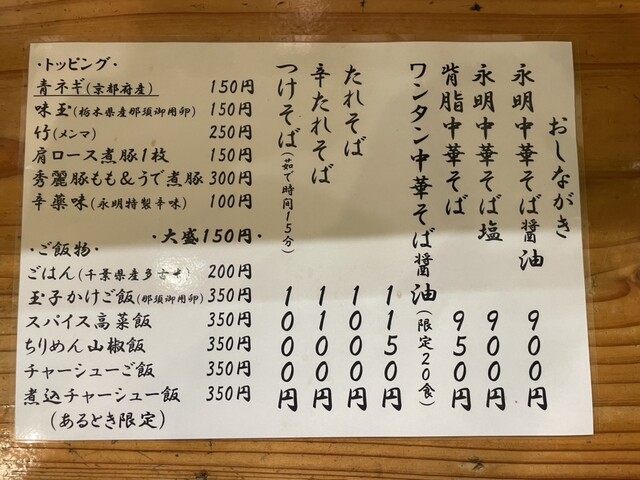 おしながき
永明中華そば醤油 900円
永明中華そば塩 900円
背脂中華そば 950円
ワンタン中華そば醤油(限定20食) 1150円
たれそば 1000円
辛たれそば 1100円
つけそば(茹で時間15分) 1000円
・トッピング・
青ネギ(京都府産) 150円
味玉(栃木県産那須御用卵) 150円
竹(メンマ) 250円
肩ロース煮豚1枚 150円
秀麗豚もも&うで煮豚 300円
辛薬味(永明特製辛味) 100円
・大盛150円・
・ご飯物・
ごはん(千葉県産多古米) 200円
玉子かけご飯(那須御用卵) 350円
スパイス高菜飯 350円
ちりめん山椒飯 350円
チャーシューご飯 350円
煮込チャーシュー飯 350円
(あるとき限定)